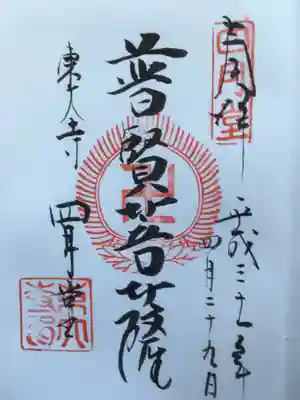 奉拝
平成三十一年
四月二十九日
普賢菩薩
東大寺 四月堂